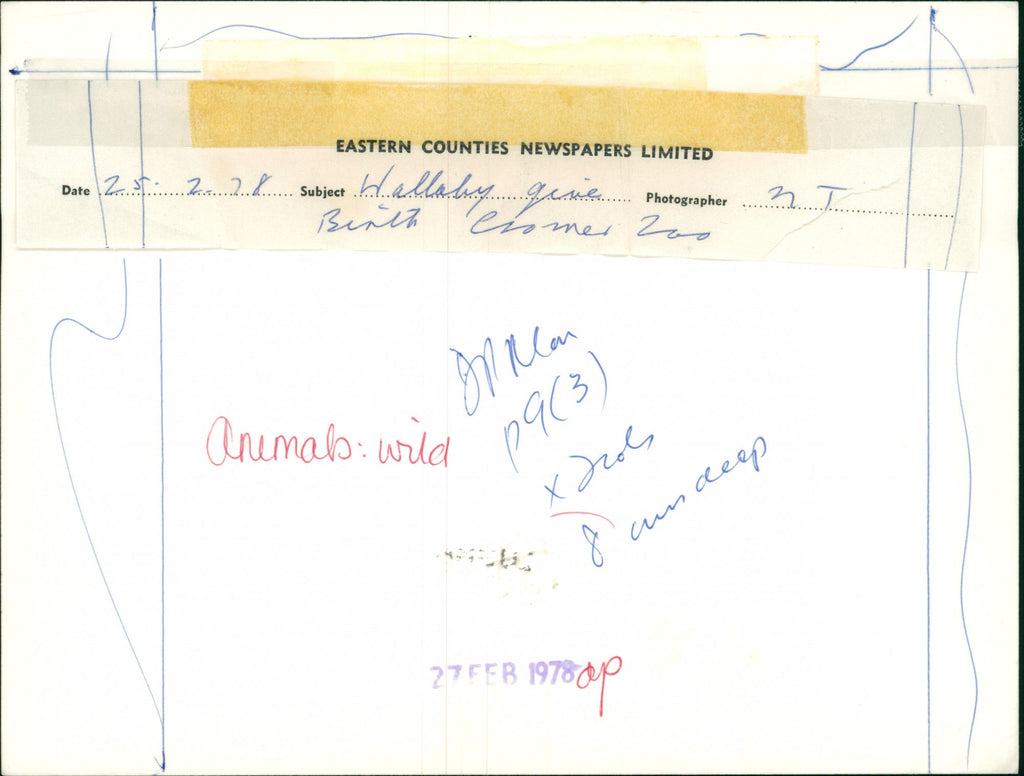 EASTERN COUNTIES NEWSPAPERS LIMITED
Date 25. 2. 78 Subject Wallaby give Photographer N T
Birth Cromer Zoo
p9(3)
Animals: wild
x 2cols
8 cms deep
27 FEB 1978 ap